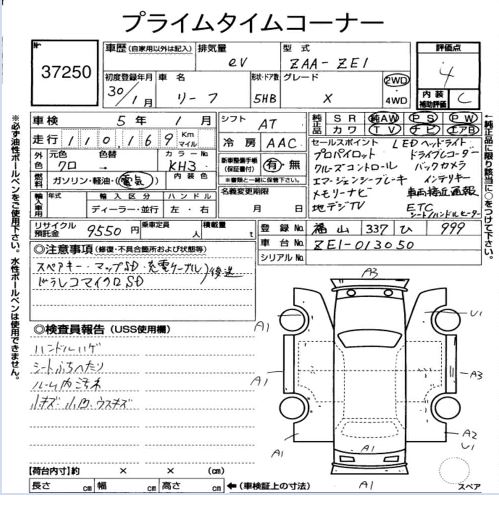 プライムタイムコーナー
No. 37250
車歴 (自家用以外は記入) 排気量 ev 型式 ZAA-ZE1 評価点 4
初度登録年月 30年/1月 車名 リーフ 形状・ドア数 5HB グレード X 2WD・4WD 内装補助評価 C
車検 5年1月 シフト AT 純正品 SR 純AW PS PW
走行 110,169 Km マイル 冷房 AAC 純正品 カワ TV ナビ エアB
外色 元色 クロ 色替 → カラーNo. KH3 内装色 新車整備手帳(保証書付) 有・無
※書類と一緒に保管して下さい。
燃料 ガソリン・軽油・(電気)
名義変更期限 月 日
輸入車用 年式 輸入区分 ディーラー・並行 ハンドル 左・右
セールスポイント LEDヘッドライト
プロパイロット ドライブレコーダー
クルーズコントロール バックカメラ
エマージェンシーブレーキ インテリキー
メモリーナビ 車両接近通報
地デジTV ETC
シート/ハンドルヒーター
リサイクル預託金 9550円 乗車定員 人 積載量 t
登録No. 福山 337 ひ 999
車台No. ZE1-013050
シリアルNo.
◎注意事項 (修復・不具合箇所および状態等)
スペアキー・マップSD・充電ケーブル
ドラレコマイクロSD
後送
◎検査員報告 (USS使用欄)
ハンドルハゲ
シートふちへたり
ルーム内汚れ
小キズ、小凹、ウスキズ
A3
A1
U1
A1
A3
A1
A2
U1
A1
A1
【荷台内寸】約 × × (cm)
長さ cm 幅 cm 高さ cm ←(車検証上の寸法)
スペア
※必ず油性ボールペンをご使用下さい。水性ボールペンは使用できません。